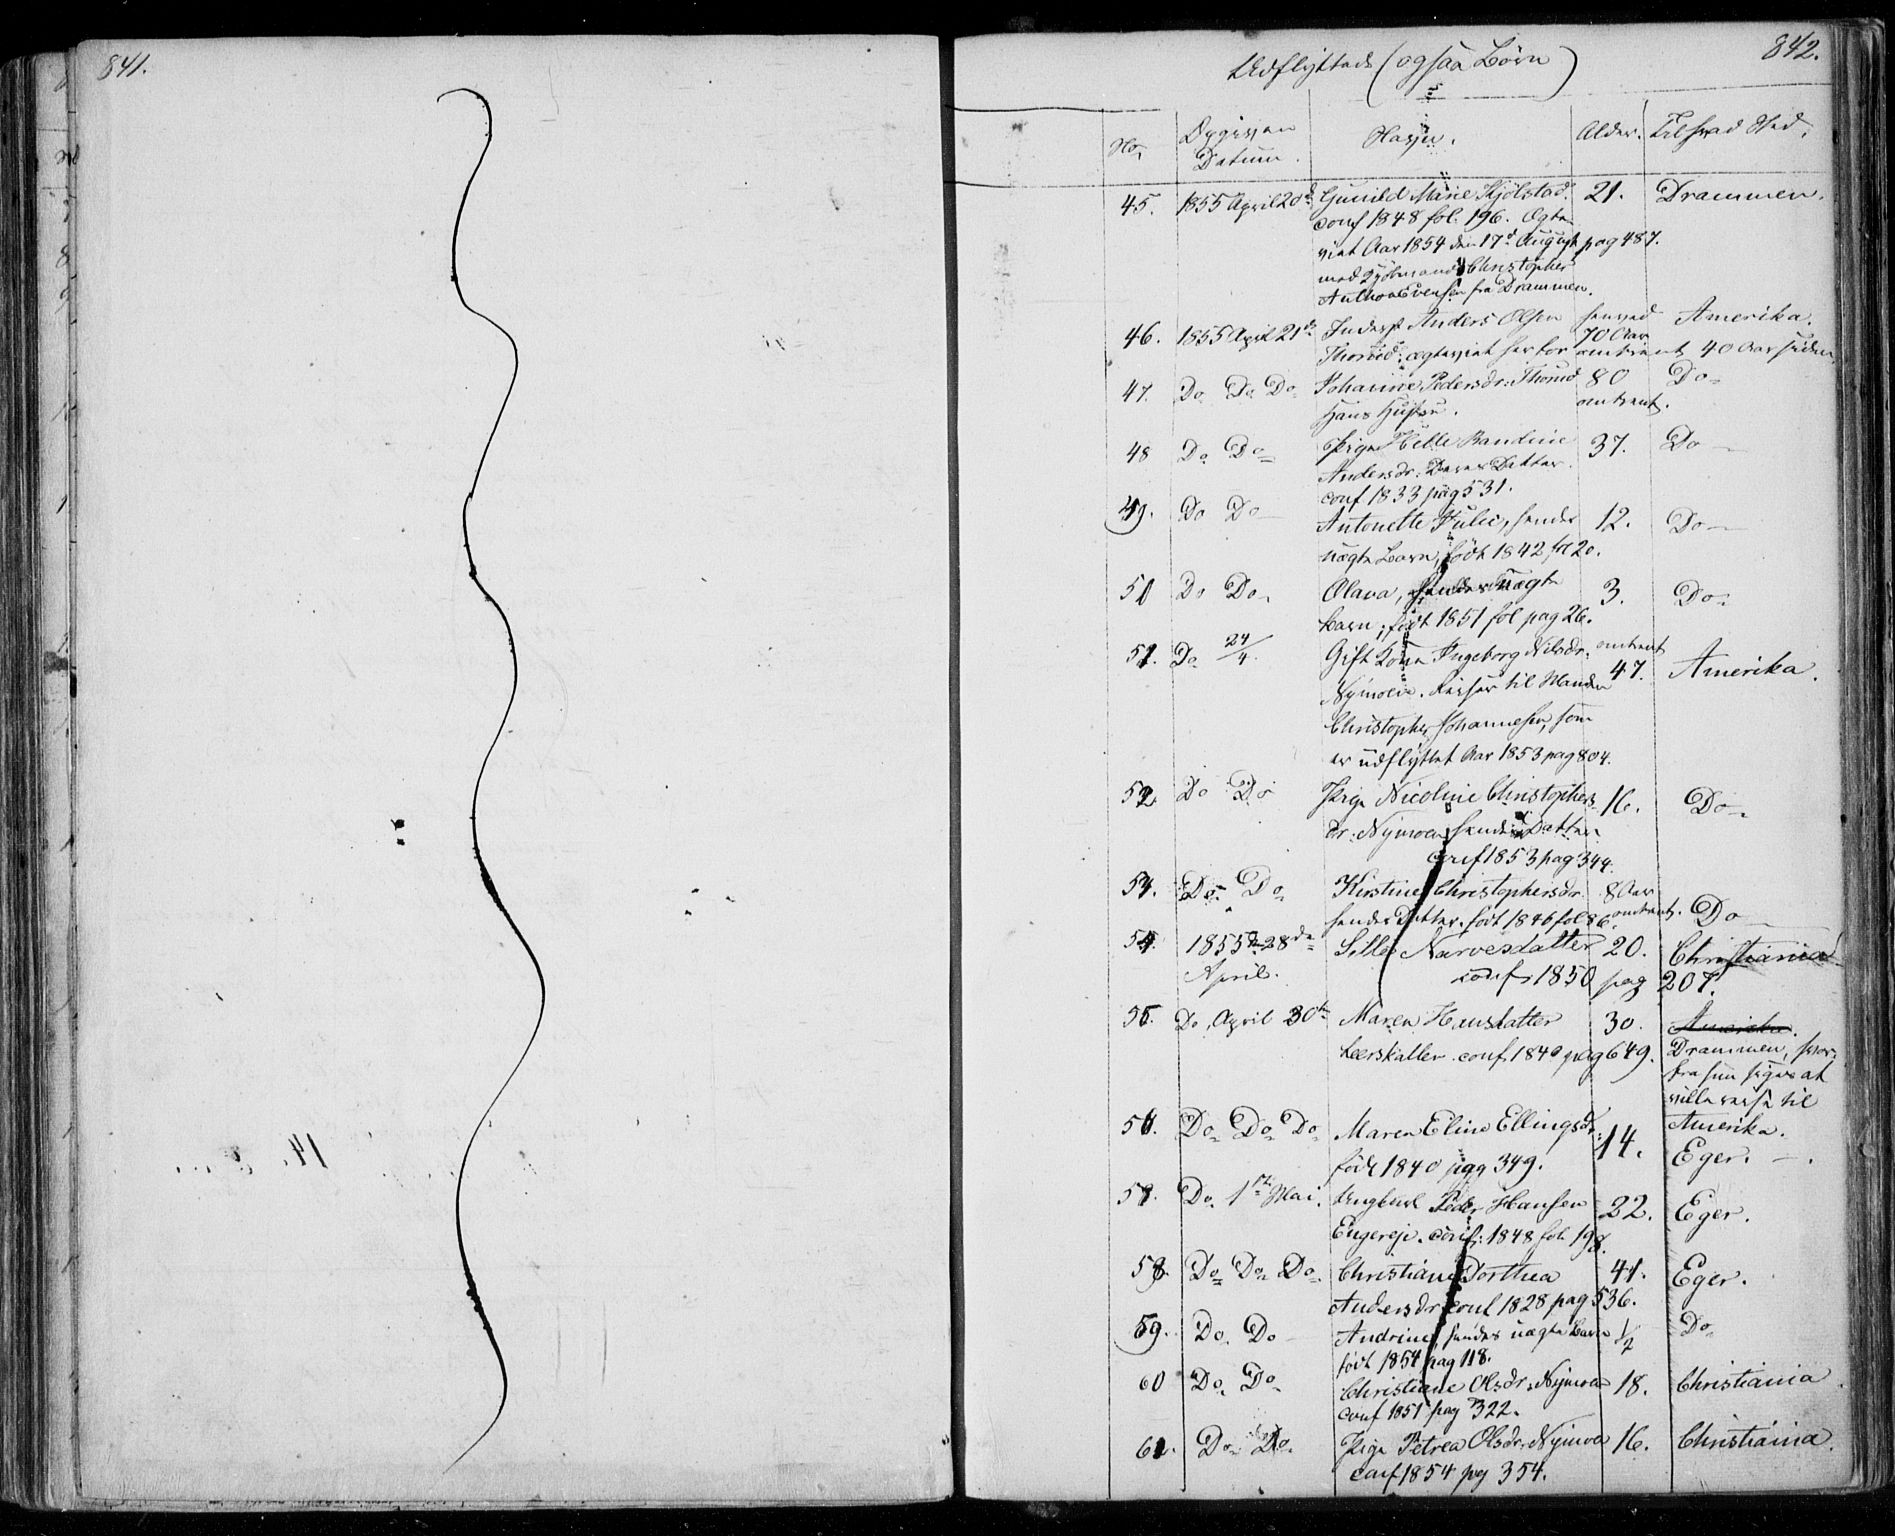 841.
842.
Udflyttede (ogsaa Børn)
No. Opgivven Datum. Navn. Alder. Tilsted Sted.
45. 1855 April 20d Gunild Marie Kjølstad. 21. Drammen.
conf 1848 fol. 196. Ægte
viet Aar 1854 den 17d August pag 487.
med Kjøbmand Christopher
Anthon Evensen fra Drammen.
46. 1855 April 21d Inderst Anders Olsen henved 70 Aar Amerika.
Thorud: ægteviet her for omtrent 40 Aar siden.
47. Do Do Do Johanne Pedersdr: Thorud 80 Do
Hans Hustru. omtrent.
48 Do Do Pige Helle Randine 37. Do
Andersdr: Deres Datter.
conf 1833 pag 531.
49. Do Do Antonette Julie, hendes 12. Do
uægte Barn, født 1842 fol 20.
50 Do Do Olava, hendes uægte 3. Do
Barn, født 1851 fol pag 26.
51. Do 24/4. Gift Kone Ingeborg Nilsdr. omtrent 47. Amerika.
Nymoen. Reiser til Manden
Christopher Johannesen, som
er udflyttet Aar 1853 pag 804.
52 Do Do Pige Nicoline Christophers 16. Do
dr: Nymoen hendes Datter
conf 1853 pag 344.
53. Do Do Kirstine Christophersdr. 8 Aar Do
hendes Datter. født 1846 fol 86. omtrent.
54. 1855 28de Sille Narvesdatter 20. Christiania
April. conf 1850 pag 207.
55. Do, April 30te Maren Hansdatter 30. Amerika.
Leerskallen. conf. 1840 pag 649. Drammen, hvor
fra hun siges at
ville reise til
Amerika.
56. Do Do Do Maren Eline Ellingsdr: 14. Eger.
født 1840 pag 349.
57. Do. 1ste Mai. Ungkarl Peder Hansen 22. Eger.
Engereje. conf: 1848 fol. 198.
58. Do Do Do Christiane Dorthea 41. Eger.
Andersdr: conf 1828 pag 536.
59. Do Do Andrine, hendes uægte Barn 1/2 Do
født 1854 pag 118.
60 Do Do Christiane Olsdr: Nymoen 18. Christiania
conf 1851 pag 322.
61. Do Do Pige Petrea Olsdr: Nymoen 16. Christiania.
conf 1854 pag 354.